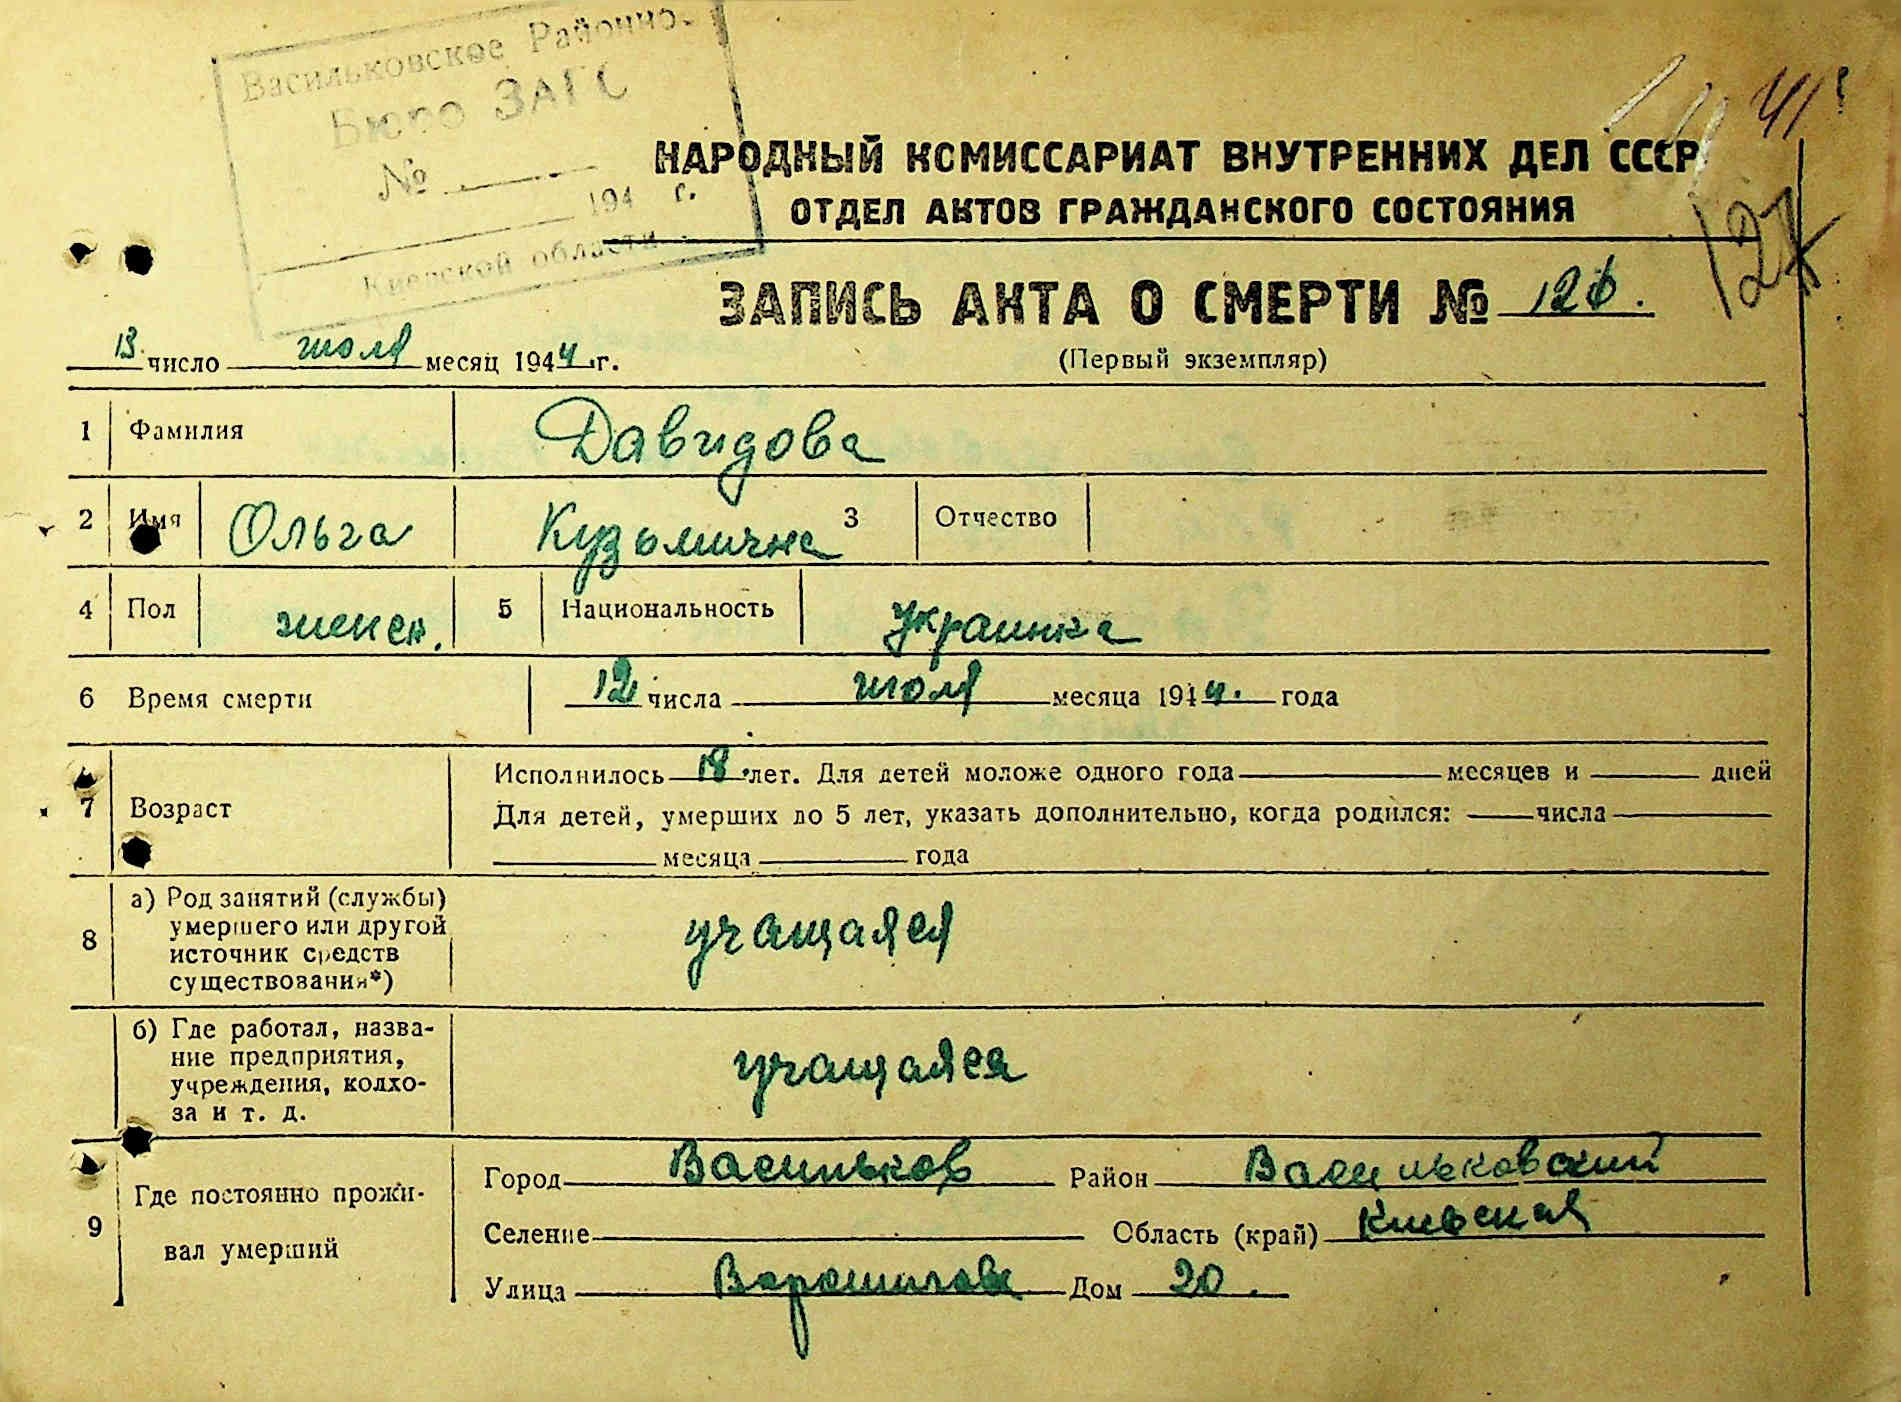 Васильковское Районно.
Бюро ЗАГС
№
194 г.
Киевской области
41
127
НАРОДНЫЙ КОМИССАРИАТ ВНУТРЕННИХ ДЕЛ СССР
ОТДЕЛ АКТОВ ГРАЖДАНСКОГО СОСТОЯНИЯ
ЗАПИСЬ АКТА О СМЕРТИ № 126.
13 число июля месяц 1944 г.
(Первый экземпляр)
1 Фамилия Давидова
2 Имя Ольга Кузьмична 3 Отчество
4 Пол женск. 5 Национальность украинка
6 Время смерти 12 числа июля месяца 1944. года
7 Возраст
Исполнилось 18 лет. Для детей моложе одного года месяцев и дней
Для детей, умерших до 5 лет, указать дополнительно, когда родился: числа
месяца года
8 а) Род занятий (службы)
умершего или другой
источник средств
существования*)
учащаяся
б) Где работал, назва-
ние предприятия,
учреждения, колхо-
за и т. д.
учащаяся
9 Где постоянно прожи-
вал умерший
Город Васильков Район Васильковский
Селение Область (край) Киевская
Улица Ворошилова Дом 20.